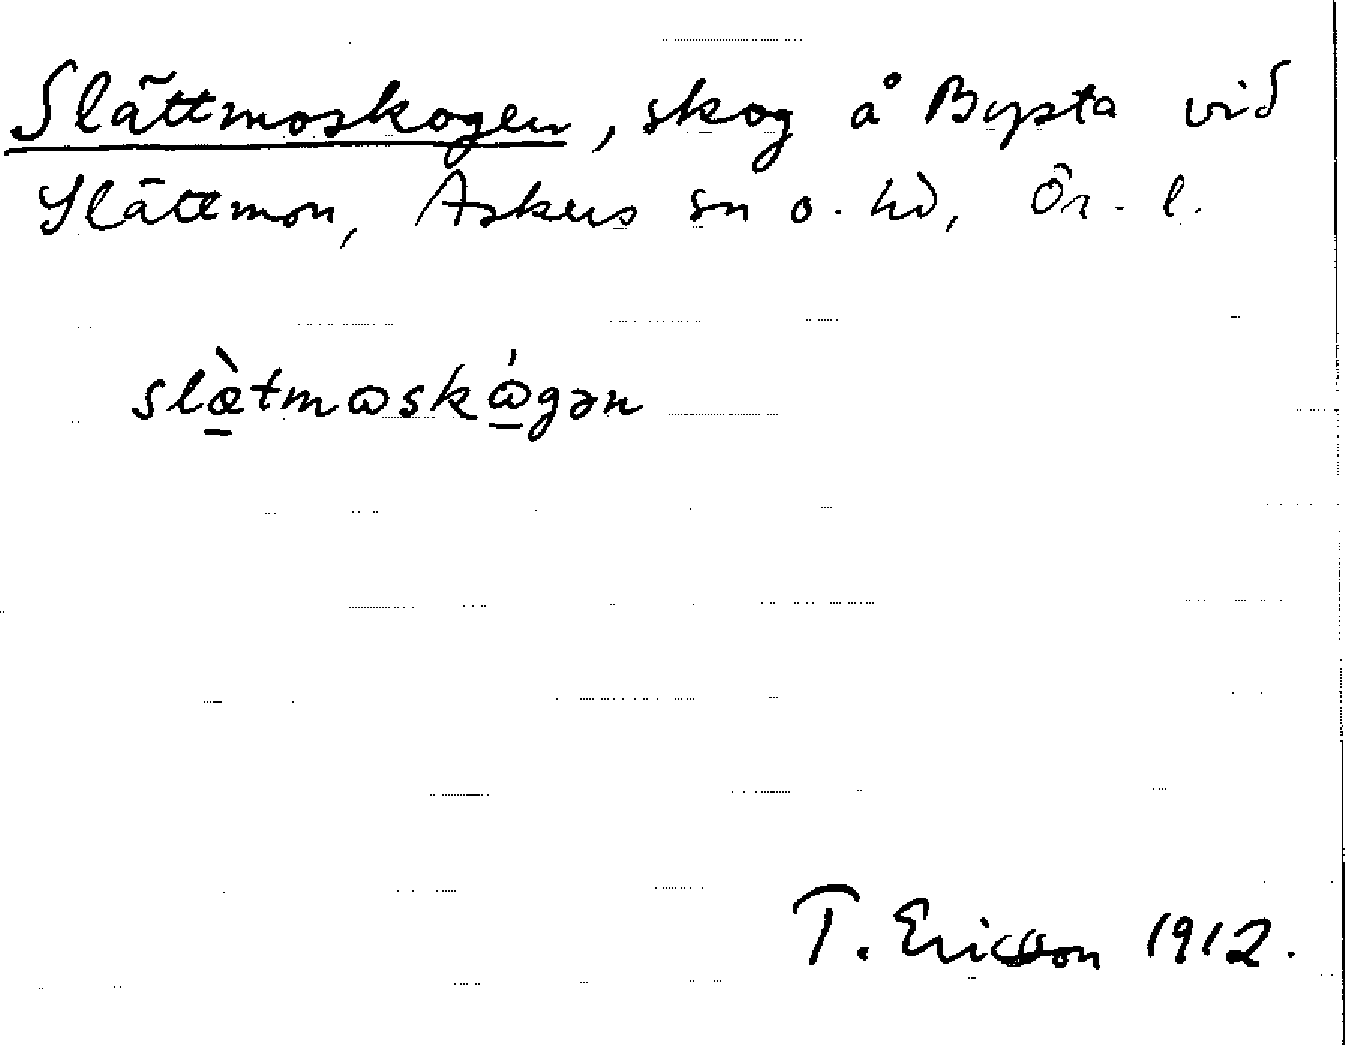 Slättmoskogen, skog å Bysta vid
Slättmon, Askers sn o. hd, Ör. l.
slæ̀tmɷskɷ́gən
T. Ericsson 1912.